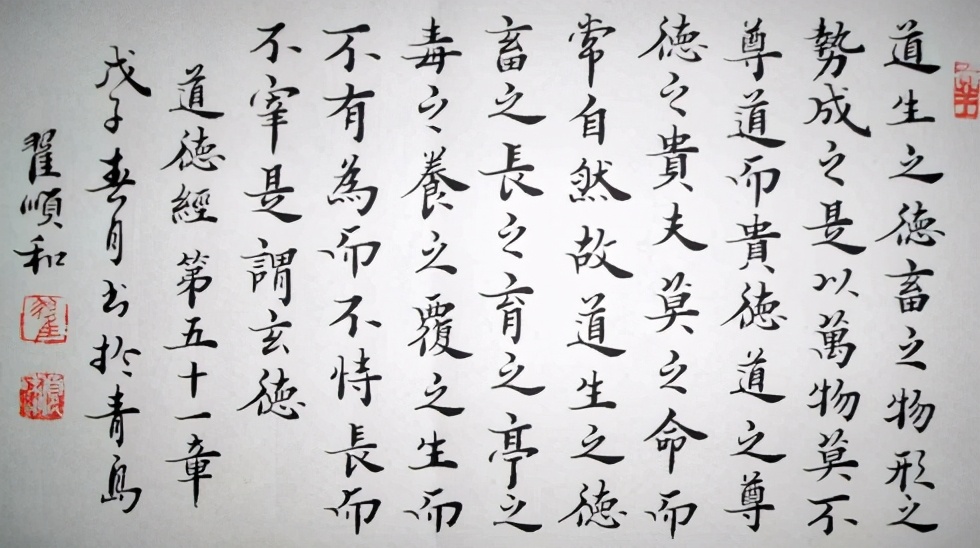 道生之德畜之物形之
勢成之是以萬物莫不
尊道而貴德道之尊
德之貴夫莫之命而
常自然故道生之德
畜之長之育之亭之
毒之養之覆之生而
不有為而不恃長而
不宰是謂玄德
道德經第五十一章
戊子春月书於青島
翟順和